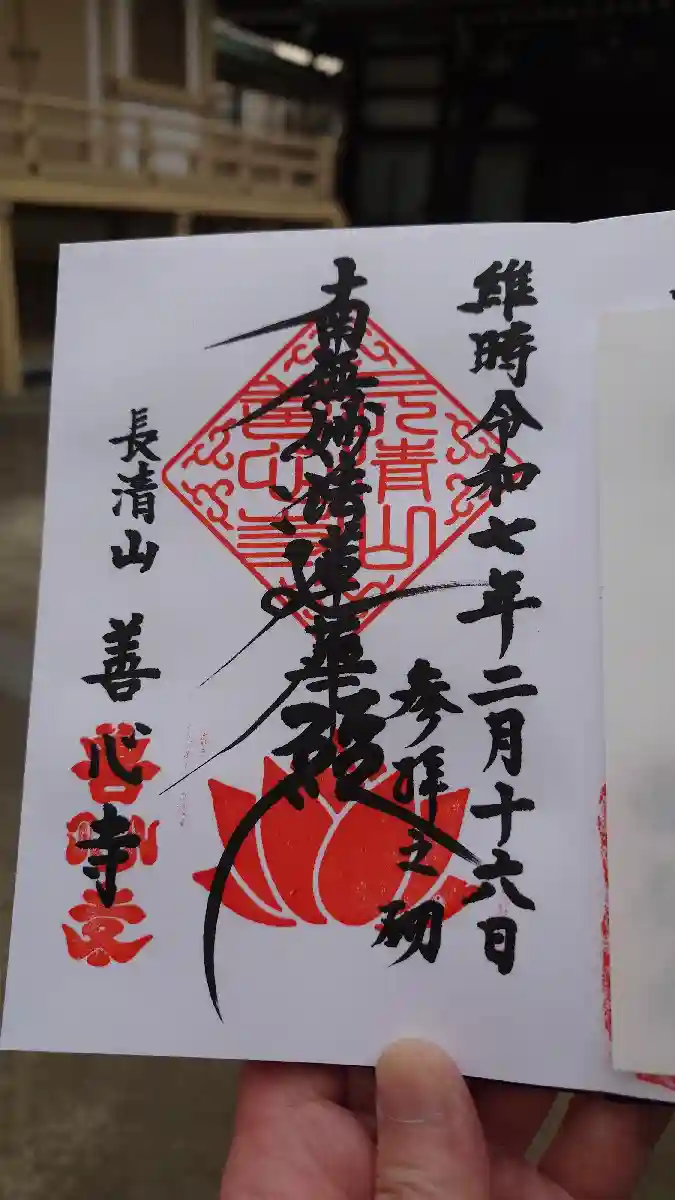 維時令和七年二月十六日
参拝之砌
南無妙法蓮華経
長清山 善心寺